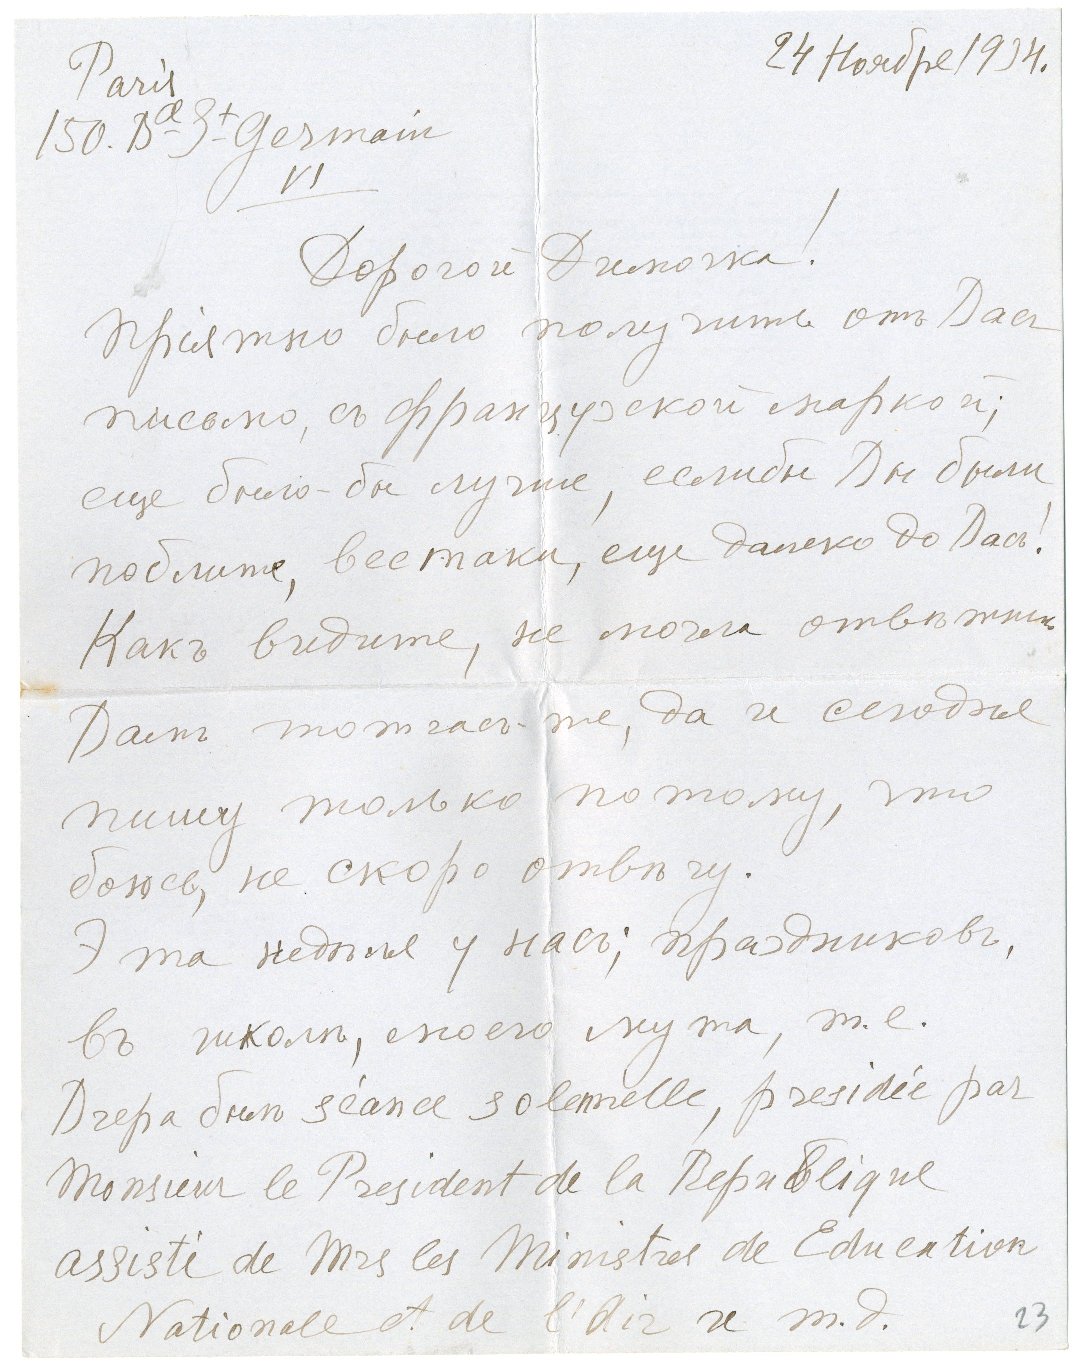 Paris
24 Ноября 1934.
150. Bd St Germain
VI
Дорогой Димочка!
Пріятно было получить отъ Васъ
письмо, съ французской маркой;
еще было-бы лучше, еслибы Вы были
поближе, всетаки, еще далеко до Васъ!
Какъ видите, не могла отвѣтить
Вамъ тотчасъ-же, да и сегодня
пишу только потому, что
боюсь, не скоро отвѣчу.
Эта недѣля у насъ; праздниковъ,
въ школѣ, моего мужа, т.е.
Вчера былъ séance solennelle, presidée par
Monsieur le President de la Republique
assisté de Mrs les Ministres de Education
Nationale et de l'Air и т.д.
23